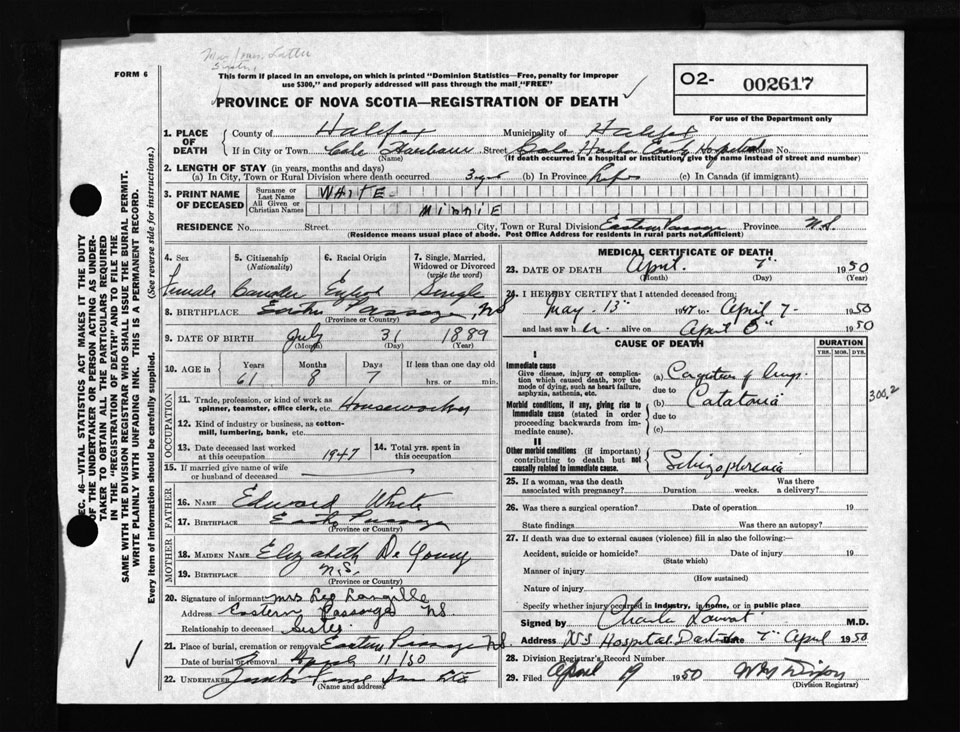 FORM 6
This form if placed in an envelope, on which is printed "Dominion Statistics—Free, penalty for improper
use $300," and properly addressed will pass through the mail "FREE"
PROVINCE OF NOVA SCOTIA—REGISTRATION OF DEATH
O2- 002617
For use of the Department only
1. PLACE OF DEATH
County of Halifax Municipality of Halifax
If in City or Town Cole Harbour Street Cole Harbour Hospital House No.
(Name) (If death occurred in a hospital or institution, give the name instead of street and number)
2. LENGTH OF STAY (in years, months and days)
(a) In City, Town or Rural Division where death occurred 3 (b) In Province Life (c) In Canada (if immigrant)
3. PRINT NAME OF DECEASED
Surname or Last Name WHITE
All Given or Christian Names MINNIE
RESIDENCE No. Street City, Town or Rural Division Eastern Passage Province N.S.
(Residence means usual place of abode. Post Office Address for residents in rural parts not sufficient)
4. Sex Female
5. Citizenship (Nationality)
6. Racial Origin
7. Single, Married, Widowed or Divorced (write the word) Single
8. BIRTHPLACE Eastern Passage, NS
(Province or Country)
9. DATE OF BIRTH July 31 1889
(Month) (Day) (Year)
10. AGE in Years Months Days If less than one day old
61 8 7 hrs. or min.
OCCUPATION
11. Trade, profession, or kind of work as spinner, teamster, office clerk, etc. Houseworker
12. Kind of industry or business, as cotton-mill, lumbering, bank, etc.
13. Date deceased last worked at this occupation 1947
14. Total yrs. spent in this occupation
15. If married give name of wife or husband of deceased
FATHER
16. NAME Edward White
17. BIRTHPLACE Eastern Passage
(Province or Country)
MOTHER
18. MAIDEN NAME Elizabeth De Young
19. BIRTHPLACE N.S.
(Province or Country)
20. Signature of informant Mrs Leo Langille
Address Eastern Passage NS.
Relationship to deceased Sister
21. Place of burial, cremation or removal Eastern Passage NS.
Date of burial or removal April 11/50
22. UNDERTAKER
(Name and address)
MEDICAL CERTIFICATE OF DEATH
23. DATE OF DEATH April 7th 1950
(Month) (Day)
24. I HEREBY CERTIFY that I attended deceased from:
May 13th 1947 to April 7 1950
and last saw her alive on April 1950
CAUSE OF DEATH
DURATION
YRS. MOS. DYS.
I
Immediate cause
Give disease, injury or complication which caused death, NOT the mode of dying, such as heart failure, asphyxia, asthenia, etc.
(a) Congestion of lungs
due to
Morbid conditions, if any, giving rise to immediate cause (stated in order proceeding backwards from immediate cause).
(b) Catatonia
due to
(c)
300.2
II
Other morbid conditions (if important) contributing to death but not causally related to immediate cause.
Schizophrenia
25. If a woman, was the death associated with pregnancy? Duration weeks. Was there a delivery?
26. Was there a surgical operation? Date of operation 19
State findings Was there an autopsy?
27. If death was due to external causes (violence) fill in also the following:—
Accident, suicide or homicide? Date of injury 19
(State which)
Manner of injury
(How sustained)
Nature of injury
Specify whether injury occurred in industry, in home, or in public place
Signed by M.D.
Address NS Hospital 7th April 1950
28. Division Registrar's Record Number
29. Filed April 19 1950
(Division Registrar)
SEC. 46—VITAL STATISTICS ACT MAKES IT THE DUTY
OF THE UNDERTAKER OR PERSON ACTING AS UNDER-
TAKER TO OBTAIN ALL THE PARTICULARS REQUIRED
IN THE "REGISTRATION OF DEATH" AND TO FILE THE
SAME WITH THE DIVISION REGISTRAR WHO SHALL ISSUE THE BURIAL PERMIT.
WRITE PLAINLY WITH UNFADING INK. THIS IS A PERMANENT RECORD.
Every item of information should be carefully supplied. (See reverse side for instructions.)